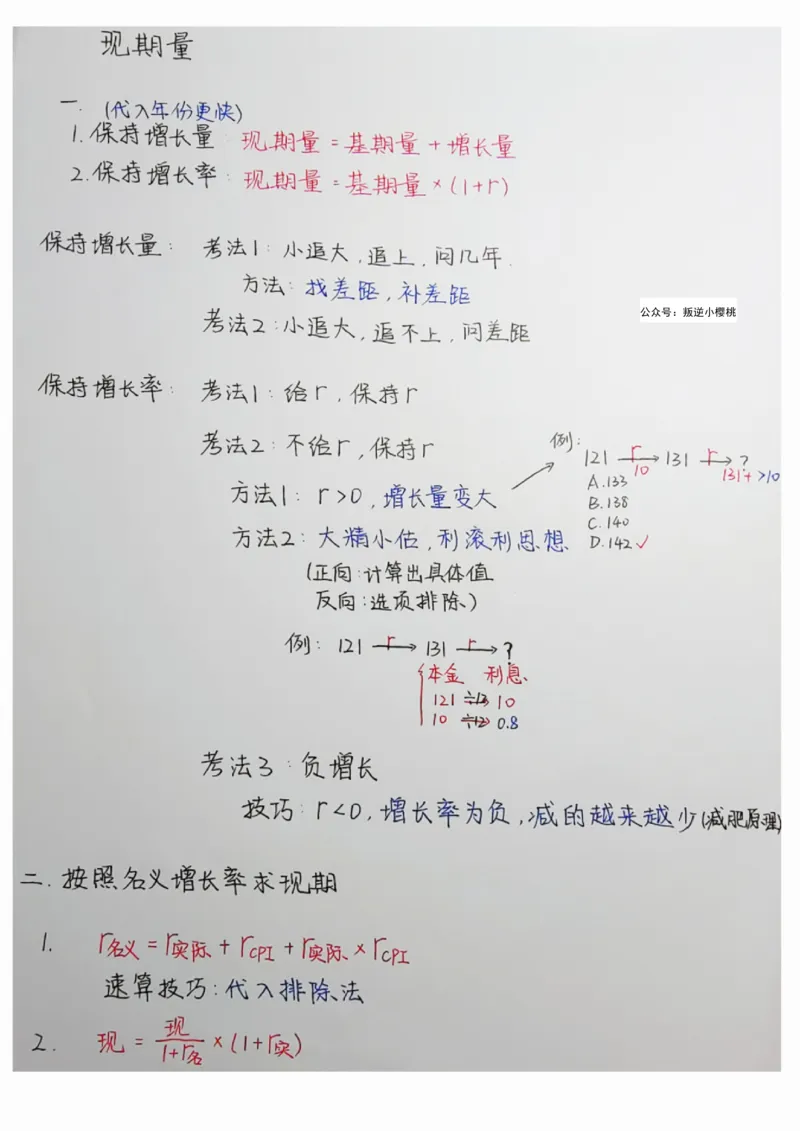 现期量
一. (代入年份更快)
1.保持增长量: 现期量=基期量+增长量
2.保持增长率: 现期量=基期量×(1+r)
保持增长量: 考法1:小追大,追上,问几年.
方法:找差距,补差距
公众号：叛逆小樱桃
考法2:小追大,追不上,问差距
保持增长率: 考法1:给r,保持r
考法2:不给r,保持r
例:
121 r→ 131 r→ ?
10 131+>10
A.133
B.138
C.140
D.142✓
方法1: r>0,增长量变大
方法2:大精小估,利滚利思想
(正向:计算出具体值
反向:选项排除)
例: 121 r→ 131 r→ ?
本金 利息
121 ÷12 10
10 ÷12 0.8
考法3:负增长
技巧: r<0,增长率为负,减的越来越少(减肥原理)
二.按照名义增长率求现期
1. r名义=r实际+rCPI+r实际×rCPI
速算技巧:代入排除法
2. 现=现/(1+r名)×(1+r实)